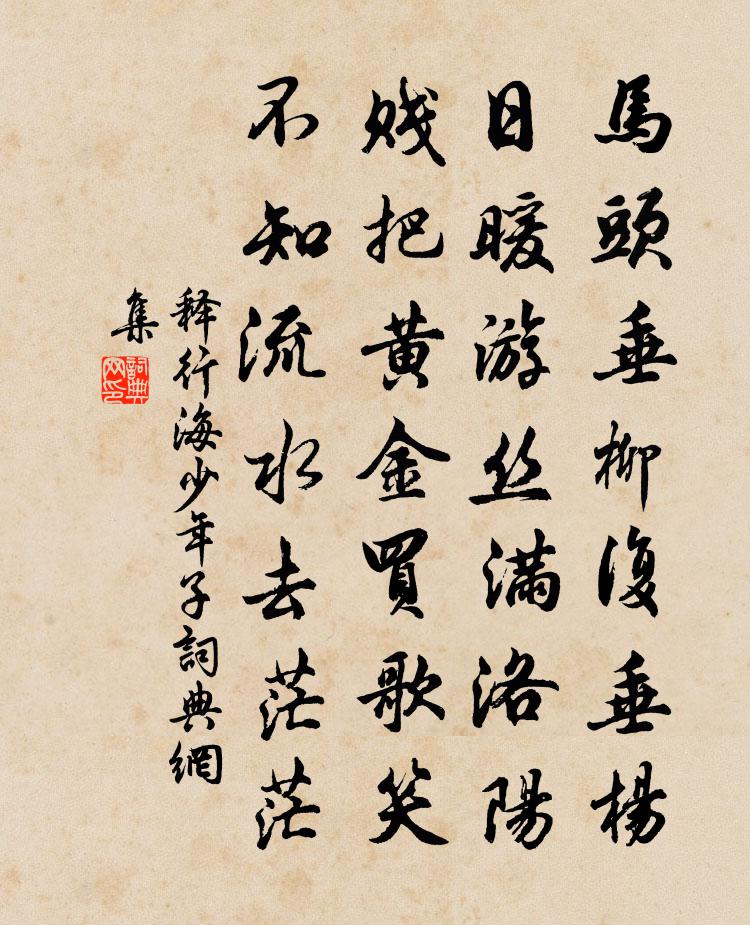 馬頭垂柳復垂楊
日暖游丝滿洛陽
賤把黄金買歌笑
不知流水去茫茫
释行海少年子詞典網
集
詞典
网印